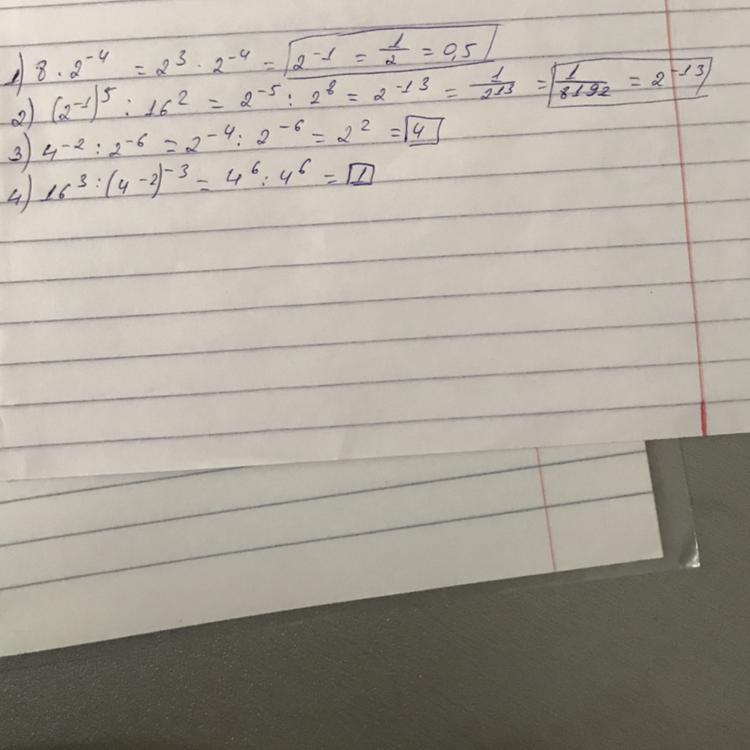 1) 8 · 2⁻⁴ = 2³ · 2⁻⁴ = 2⁻¹ = 1/2 = 0,5
2) (2⁻¹)⁵ : 16² = 2⁻⁵ : 2⁸ = 2⁻¹³ = 1/2¹³ = 1/8192 = 2⁻¹³
3) 4⁻² : 2⁻⁶ = 2⁻⁴ : 2⁻⁶ = 2² = 4
4) 16³ : (4⁻²)⁻³ = 4⁶ : 4⁶ = 1